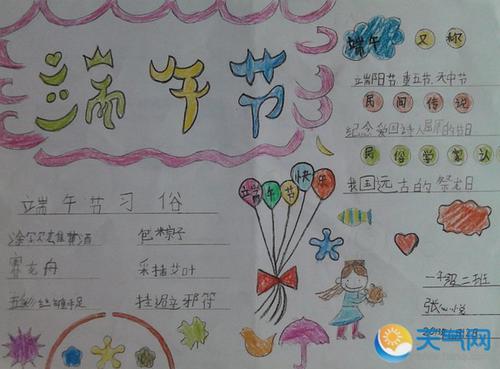 端午节
端午 又称
端阳节、重五节、天中节
民间传说
纪念爱国诗人屈原的节日
民俗学家认
我国远古的祭龙日
端午节快乐
端午节习俗
包粽子
赛龙舟 采摘艾叶
五彩丝缠手足 挂避邪符
一年级二班
天气网